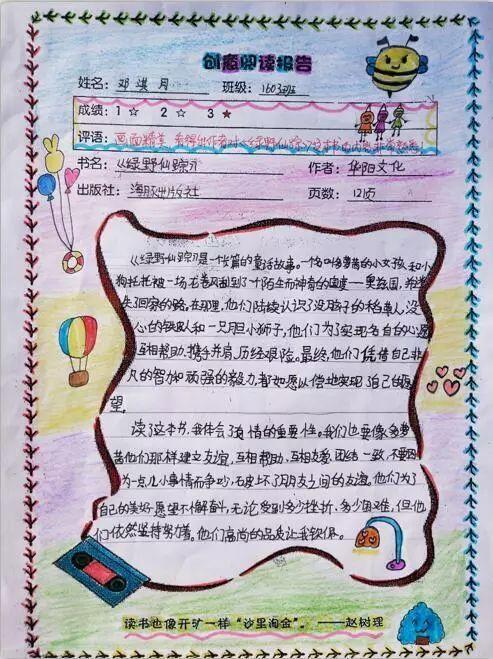 创意阅读报告
姓名：邓淇月 班级：1603班
成绩：1☆ 2☆ 3★
评语：画面精美，看得出作者对《绿野仙踪》这本书的内容非常熟悉！
书名：《绿野仙踪》 作者：华阳文化
出版社：海豚出版社 页数：121页
《绿野仙踪》是一传篇的童话故事。一个叫多萝茜的小女孩和小
狗托托被一场龙卷风刮到了个陌生而神奇的国度——奥兹国，并迷
失了回家的路。在那里，他们陆续认识了没脑子的稻草人、没
心的铁皮人和一只胆小狮子，他们为了实现各自的心愿
互相帮助，携手并肩，历经艰险。最终，他们凭借自己非
凡的智力和顽强的毅力，都如愿以偿地实现了自己的愿
望。
读了这本书，我体会了友情的重要性。我们也要像多萝
茜他们那样建立友谊，互相帮助，互相友爱，团结一致，不要因
为一点儿小事情而争吵，而破坏了朋友之间的友谊。他们为了
自己的美好愿望不懈奋斗，无论受到多少挫折、多少困难，但他
们依然坚持努力着。他们高尚的品质让我钦佩。
读书也像开矿一样“沙里淘金”。——赵树理